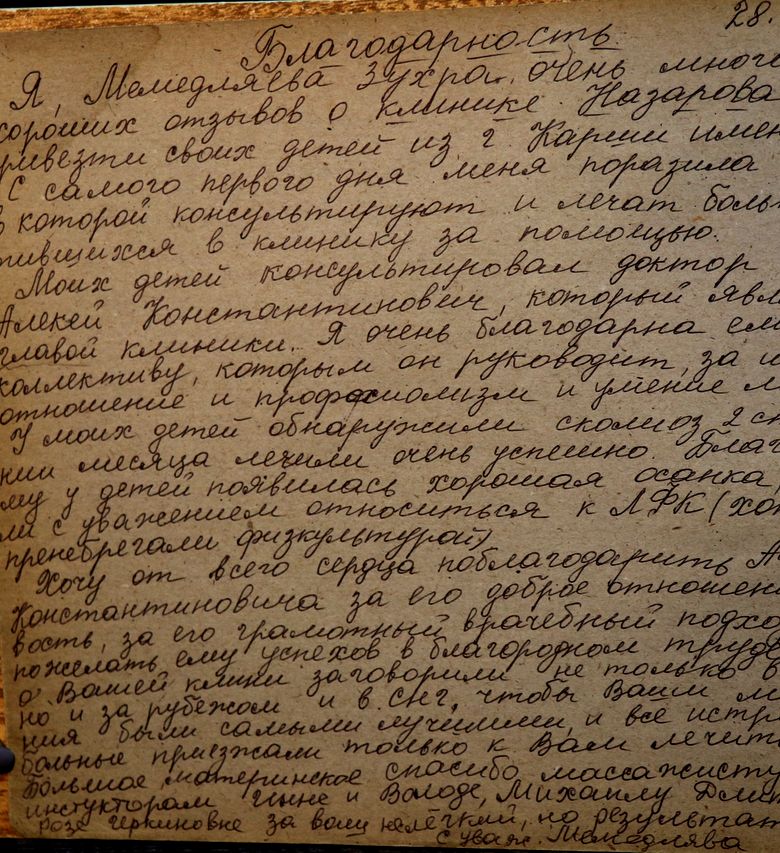 28.
Благодарность
Я, Мемедляева Зухра, очень много
хороших отзывов о клинике Назарова
ривезти своих детей из г. Карши имен
С самого первого дня меня поразила
в которой консультируют и лечат боль
тившихся в клинику за помощью.
Моих детей консультировал доктор
Алекей Константинович, который явл
главой клиники. Я очень благодарна ем
коллективу, которым он руководит, за
отношение и и умение
У моих детей обнаружили сколиоз 2 ст
нии месяца лечили очень успешно. Благ
му у детей появилась хорошая осанка,
ли с уважением относиться к ЛФК (хот
пренебрегали физкультурой)
Хочу от всего сердца поблагодарить А
Константиновича за его доброе отношени
вость, за его грамотный врачебный подхо
пожелать ему успехов в благородном труде
о Вашей клини заговорили не только в
но и за рубежом и в СНГ, чтобы Ваши
ния были самыми лучшими, и все
больные приезжали только к Вам лечит
Большое материнское спасибо массажисту
инстукторам и Володе, Михаилу Дми
Розе за вашу нелёгкий, но результат
с уваж. Мемедлява